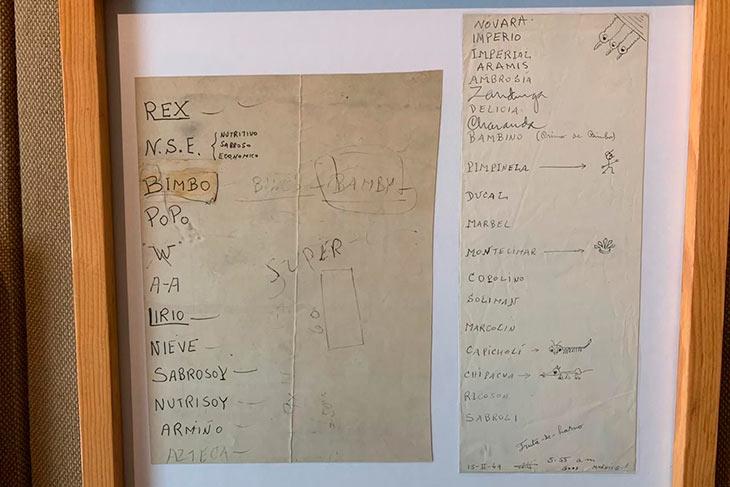 REX
N.S.E. { NUTRITIVO
SABROSO
ECONOMICO
BIMBO BAMBY
POPO
W
A-A
SUPER
LIRIO
NIEVE
SABROSOY
NUTRISOY
ARMIÑO
AZTECA
NOVARA
IMPERIO
IMPERIAL
ARAMIS
AMBROSIA
Zandunga
DELICIA
Charanda
BAMBINO (Primo de Bimbo)
PIMPINELA
DUCAL
MARBEL
MONTELIMAR
COPOLINO
SOLIMAN
MARCOLIN
CAPICHOLÍ
CHIPACUA
RICOSON
SABROLI
5:55 a.m